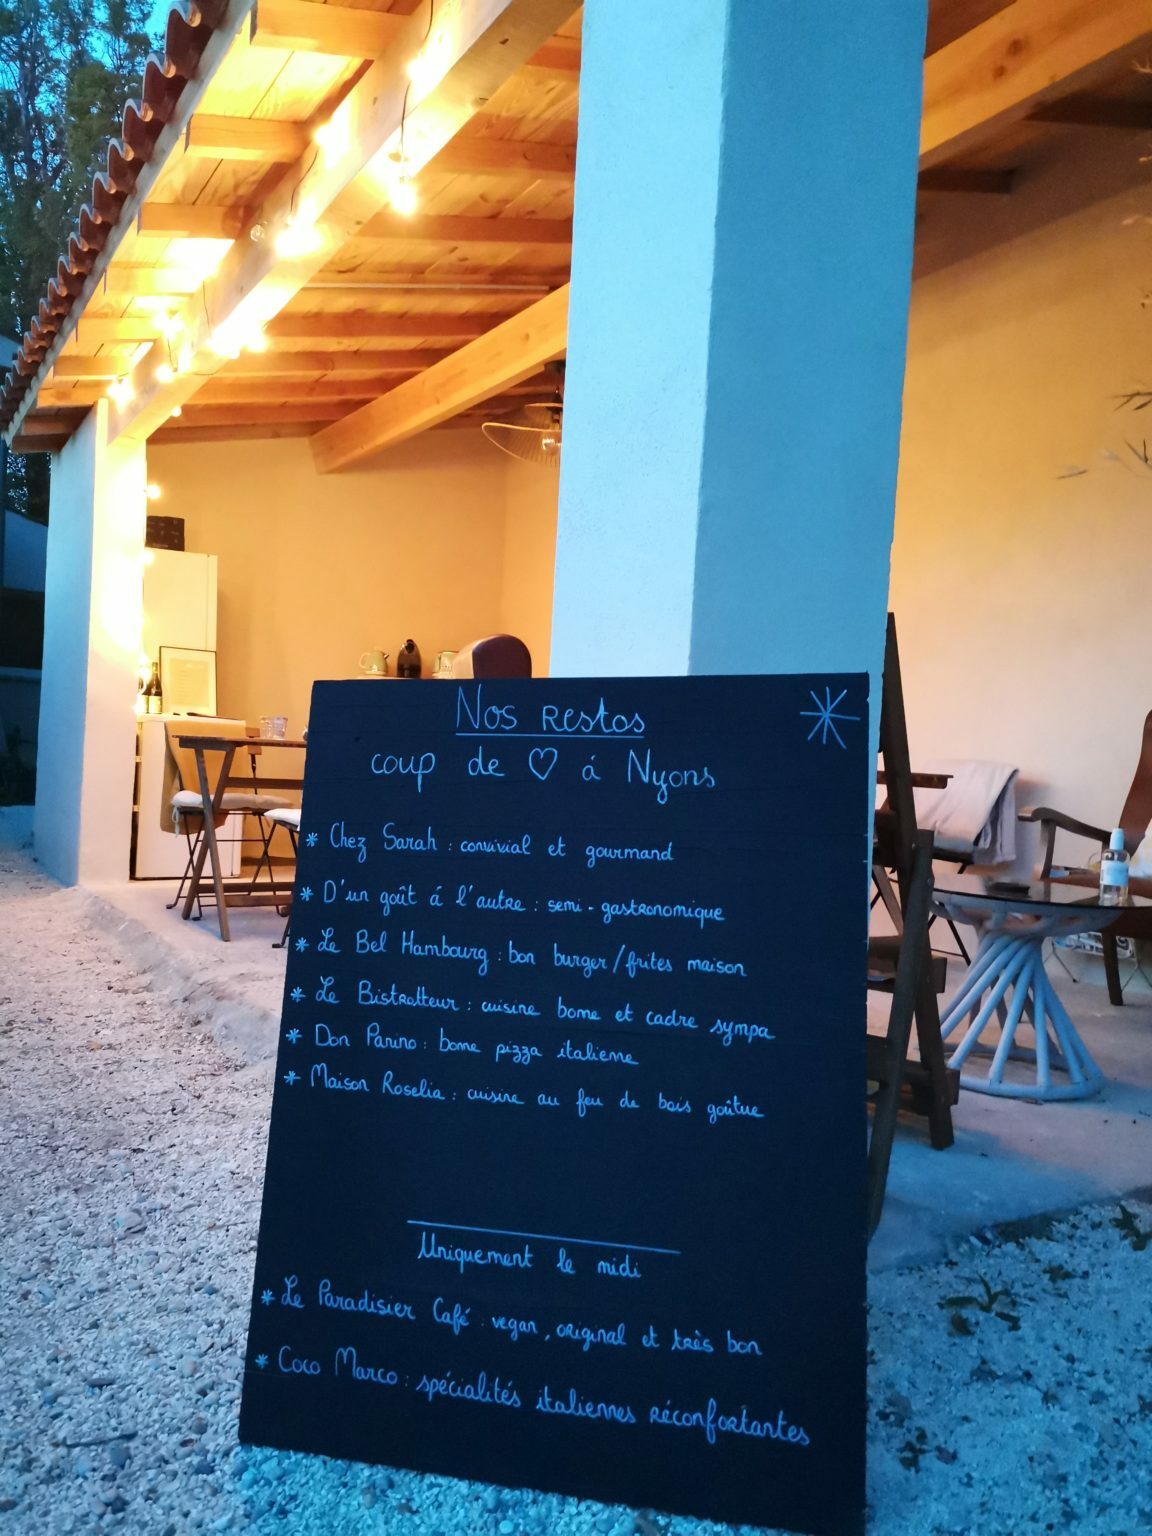 Nos restos
coup de ♡ á Nyons
* Chez Sarah : convivial et gourmand
* D'un goût á l'autre : semi-gastronomique
* Le Bel Hambourg : bon burger/frites maison
* Le Bistrotteur : cuisine bonne et cadre sympa
* Don Panino : bonne pizza italienne
* Maison Roselia : cuisine au feu de bois goûtue
Uniquement le midi
* Le Paradisier Café : vegan, original et très bon
* Coco Marco : spécialités italiennes réconfortantes